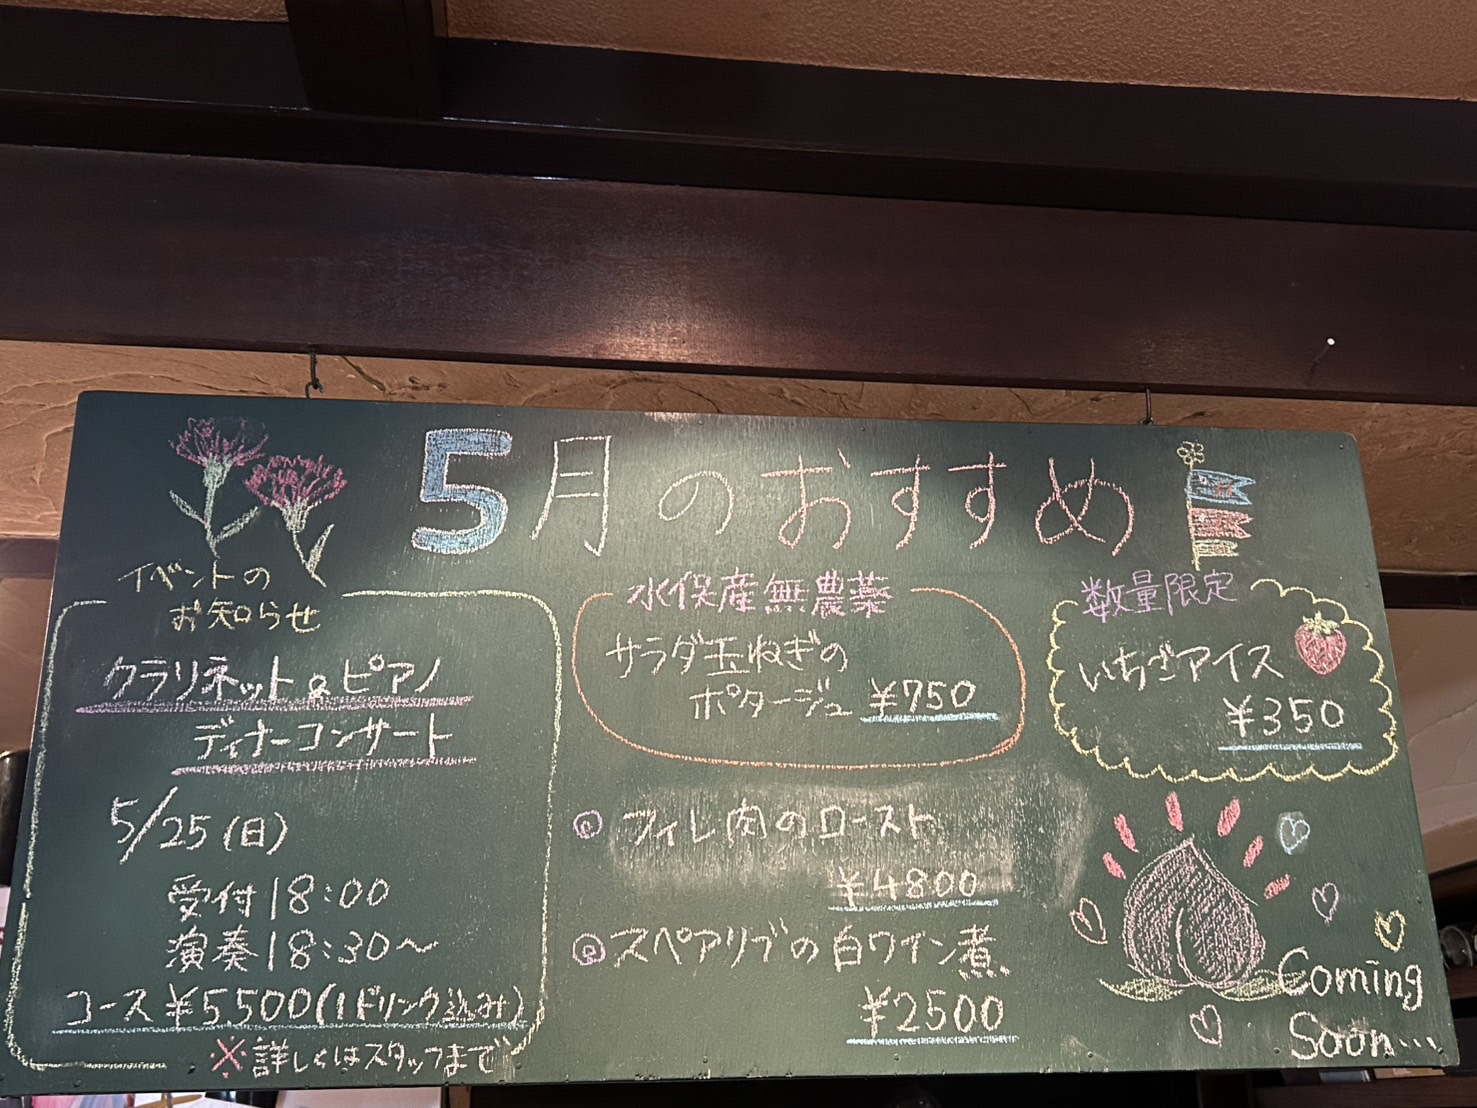 5月のおすすめ
イベントの
お知らせ
クラリネット&ピアノ
ディナーコンサート
5/25(日)
受付18:00
演奏18:30～
コース¥5500(1ドリンク込み)
※詳しくはスタッフまで
水俣産無農薬
サラダ玉ねぎの
ポタージュ ¥750
フィレ肉のロースト
¥4800
スペアリブの白ワイン煮
¥2500
数量限定
いちごアイス
¥350
Coming
Soon...